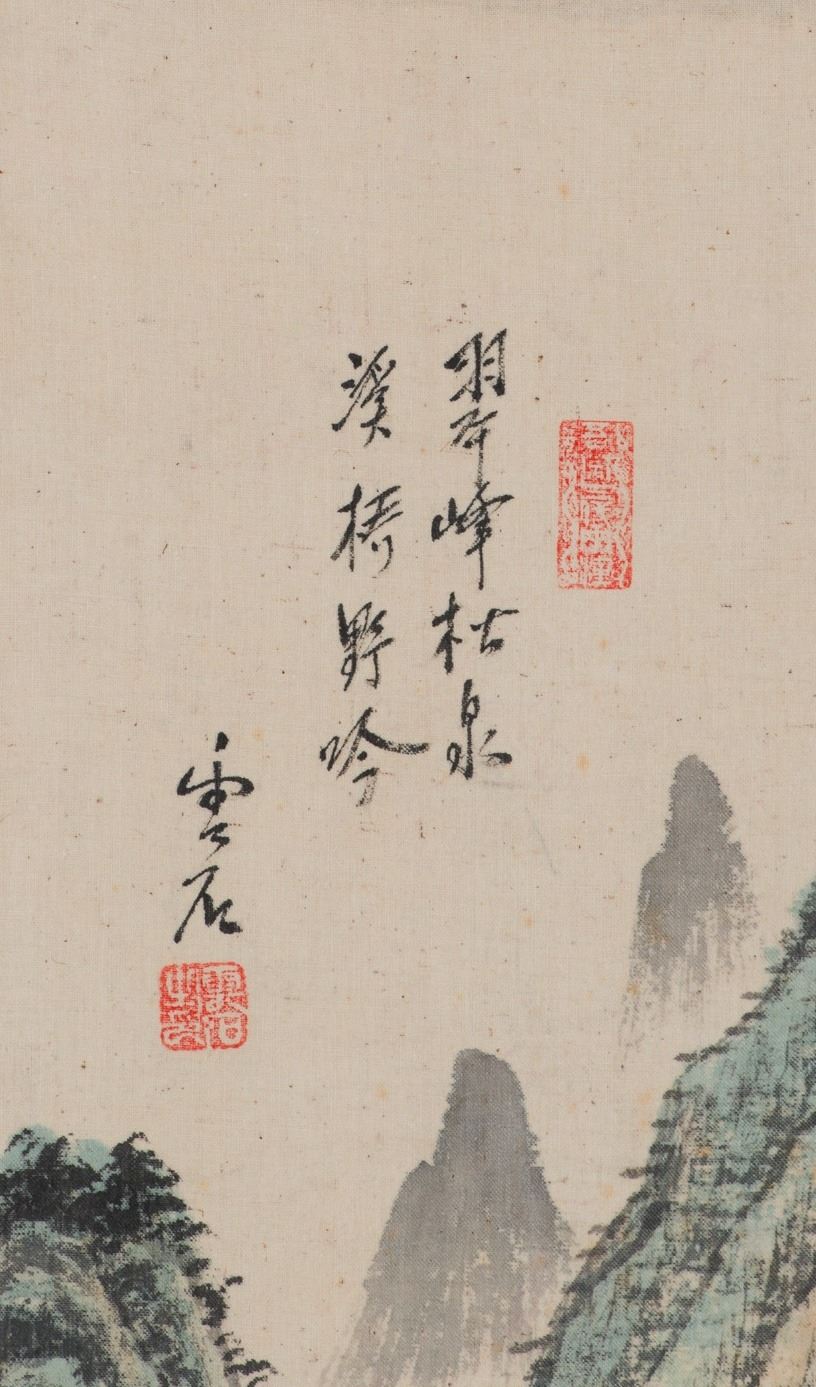 翠峰枯泉
溪橋野吟
雲石